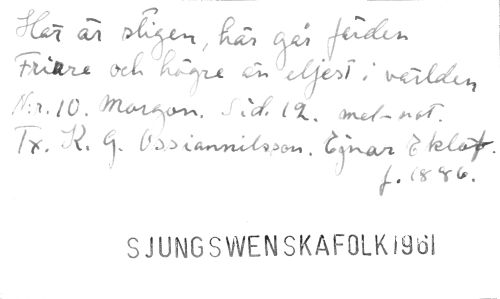 Här är stigen, här går färden
Friare och högre än eljest i världen
N:r. 10. Morgon. Sid. 12. mel-not.
Tx. K. G. Ossiannilsson. Ejnar Eklöf.
f. 1886.
SJUNGSWENSKAFOLK1961